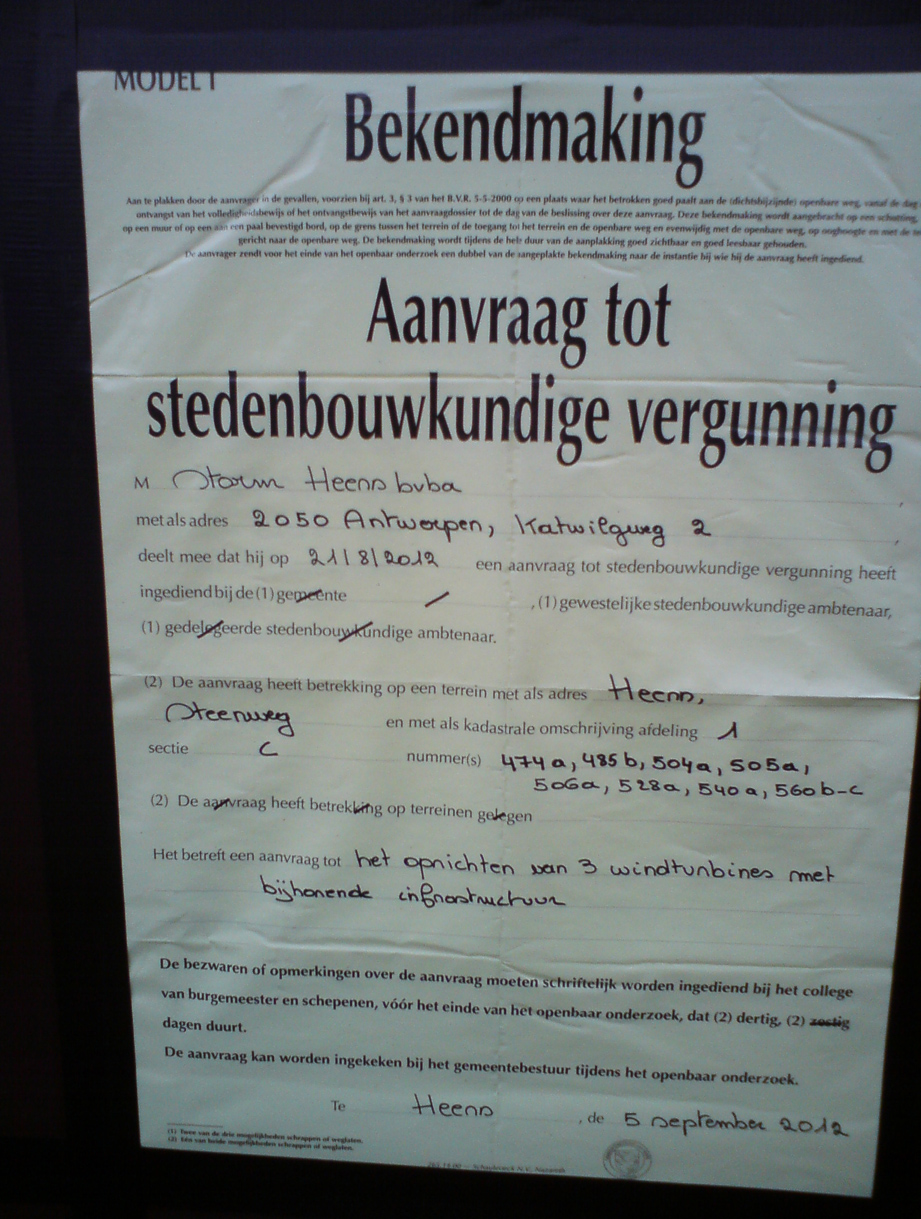 MODEL I
Bekendmaking
Aan te plakken door de aanvrager in de gevallen, voorzien bij art. 3, § 3 van het B.V.R. 5-5-2000 op een plaats waar het betrokken goed paalt aan de (dichtsbijzijnde) openbare weg, vanaf de dag
ontvangst van het volledigheidsbewijs of het ontvangstbewijs van het aanvraagdossier tot de dag van de beslissing over deze aanvraag. Deze bekendmaking wordt aangebracht op een schutting,
op een muur of op een aan een paal bevestigd bord, op de grens tussen het terrein of de toegang tot het terrein en de openbare weg en evenwijdig met de openbare weg, op ooghoogte en met de
gericht naar de openbare weg. De bekendmaking wordt tijdens de hele duur van de aanplakking goed zichtbaar en goed leesbaar gehouden.
De aanvrager zendt voor het einde van het openbaar onderzoek een dubbel van de aangeplakte bekendmaking naar de instantie bij wie hij de aanvraag heeft ingediend.
Aanvraag tot
stedenbouwkundige vergunning
M Storm Heers bvba
met als adres 2050 Antwerpen, Katwilgweg 2
deelt mee dat hij op 21/8/2012 een aanvraag tot stedenbouwkundige vergunning heeft
ingediend bij de (1) gemeente , (1) gewestelijke stedenbouwkundige ambtenaar,
(1) gedelegeerde stedenbouwkundige ambtenaar.
(2) De aanvraag heeft betrekking op een terrein met als adres Heers,
Steenweg en met als kadastrale omschrijving afdeling 1
sectie C nummer(s) 474a, 485b, 504a, 505a,
506a, 528a, 540a, 560b-c
(2) De aanvraag heeft betrekking op terreinen gelegen
Het betreft een aanvraag tot het oprichten van 3 windturbines met
bijhorende infrastructuur
De bezwaren of opmerkingen over de aanvraag moeten schriftelijk worden ingediend bij het college
van burgemeester en schepenen, vóór het einde van het openbaar onderzoek, dat (2) dertig, (2) zestig
dagen duurt.
De aanvraag kan worden ingekeken bij het gemeentebestuur tijdens het openbaar onderzoek.
Te Heers , de 5 september 2012
(1) Twee van de drie mogelijkheden schrappen of weglaten.
(2) Eén van beide mogelijkheden schrappen of weglaten.